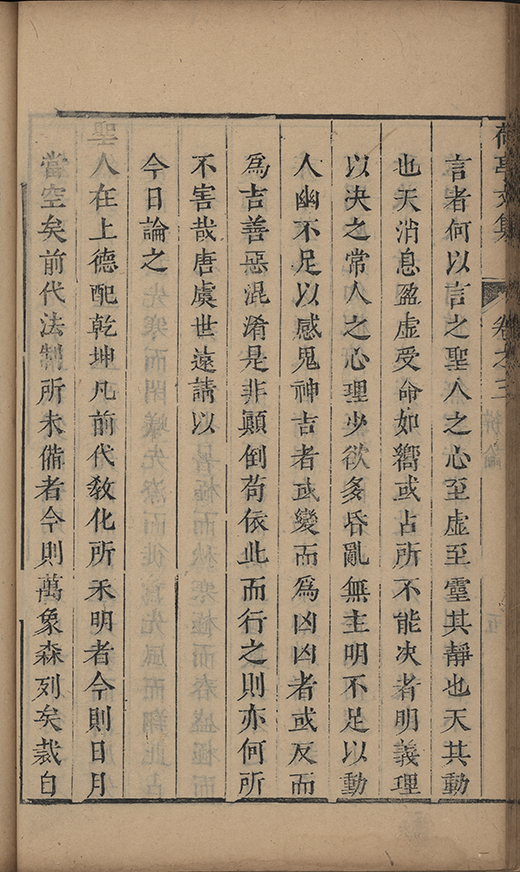 卷之三
言者何以言之聖人之心至虛至靈其靜也天其動
也天消息盈虛受命如嚮或占所不能决者明義理
以决之常人之心理少欲多昏亂無主明不足以動
人幽不足以感鬼神吉者或變而爲凶凶者或反而
爲吉善惡混淆是非顛倒苟依此而行之則亦何所
不害哉唐虞世遠請以
今日論之
聖
人在上德配乾坤凡前代敎化所未明者今則日月
當空矣前代法制所未備者今則萬象森列矣裁自